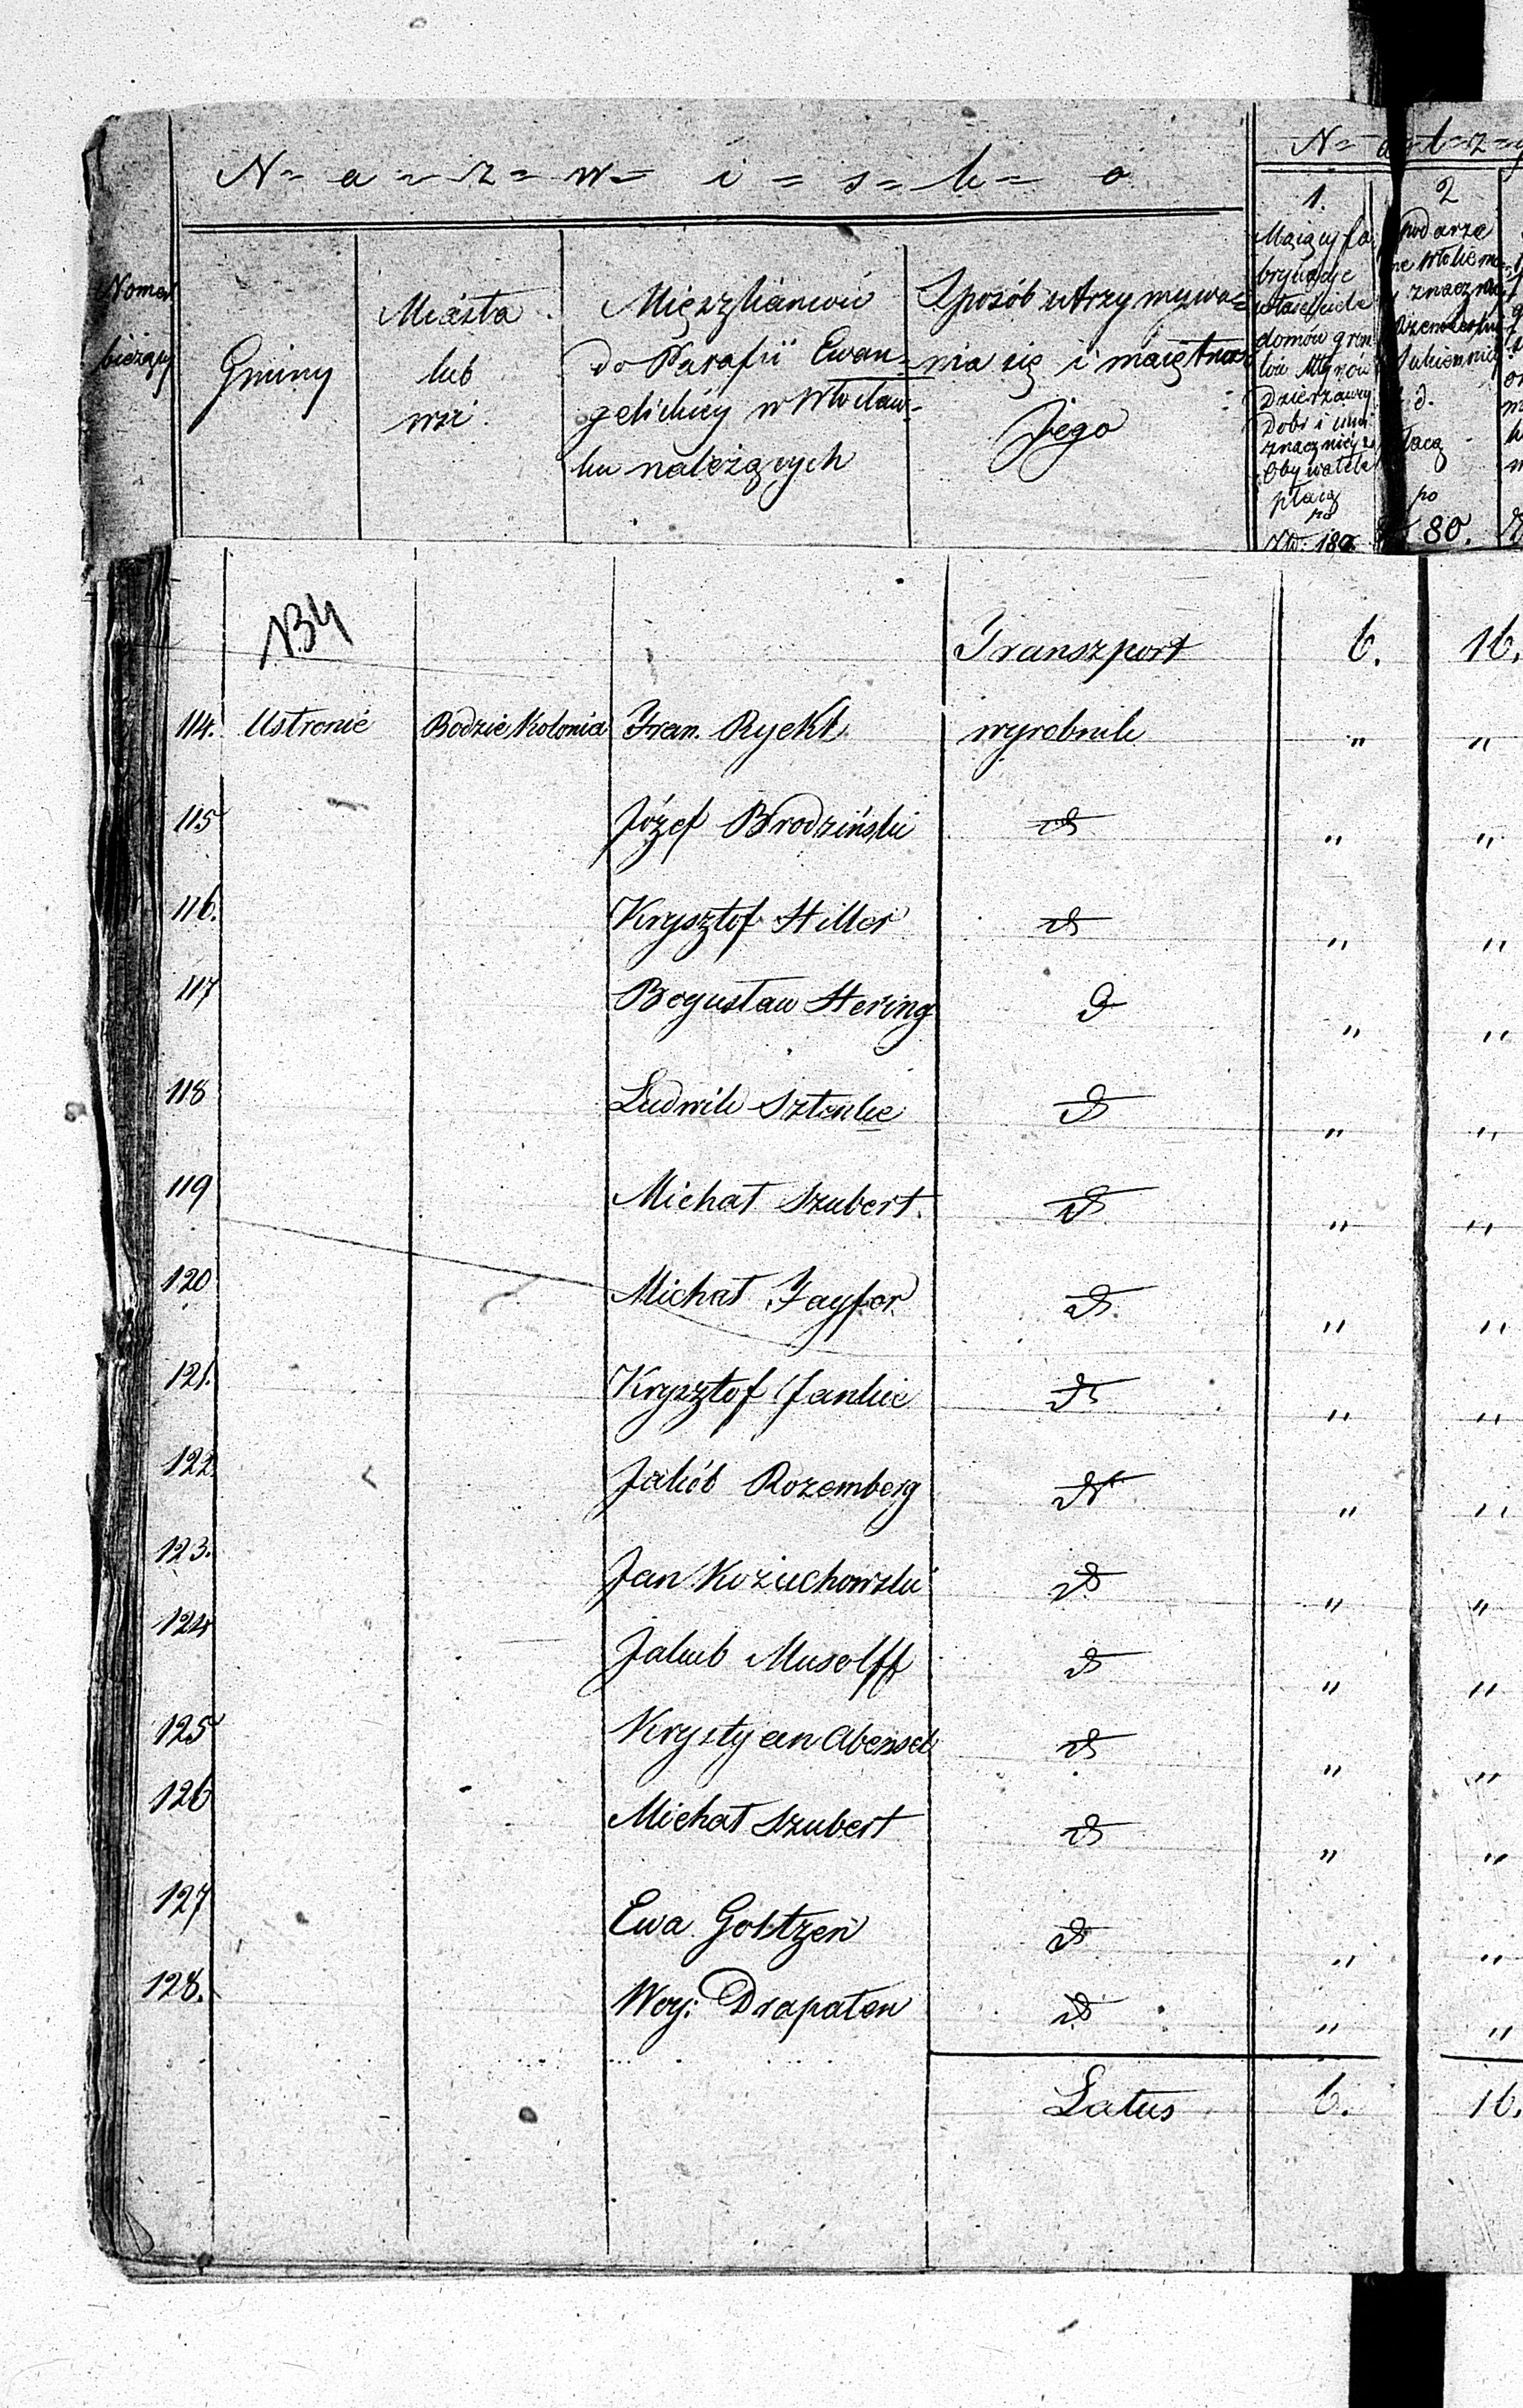 N= a= z= w= i= s= k= o
N= a= l= z= y
Numer
bieżący
Gminy
Miasta
lub
wsi
Mięszkańców
do Parafii Ewan-
gelickiey w Włocław-
ku należących
Sposób utrzymywa=
nia się i maiętnos
Jego
1.
Maiący fa
brykacye
właściciele
domów grun
tów Młynów
Dzierzawcy
Dobr i inni
znacznieysi
Obywatele
płacą
po
Złp: 180
2
płacą
po
80.
134
Transzport 6. 16.
114. Ustronie Bodzie Kolonia Fran. Rycht wyrobnik " "
115 Józef Brodziński d " "
116. Krysztof Hiller d " "
117 Bogusław Hering d " "
118 Ludwik Sztenke d " "
119 Michał Szubert d " "
120 Michał Fayfer d " "
121. Krysztof Jankie d " "
122. Jakób Rozemberg d " "
123. Jan Kożuchowski d " "
124 Jakub Musolff d " "
125 Krystyan Abensel d " "
126 Michał Szubert d " "
127 Ewa Goltzen d " "
128. Woy: Drapaten d " "
Latus 6. 16.